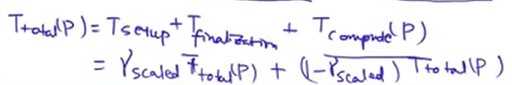 Ttotal(P) = Tsetup + Tfinalization + Tcompute(P)
= γscaled Ttotal(P) + (1-γscaled) Ttotal(P)